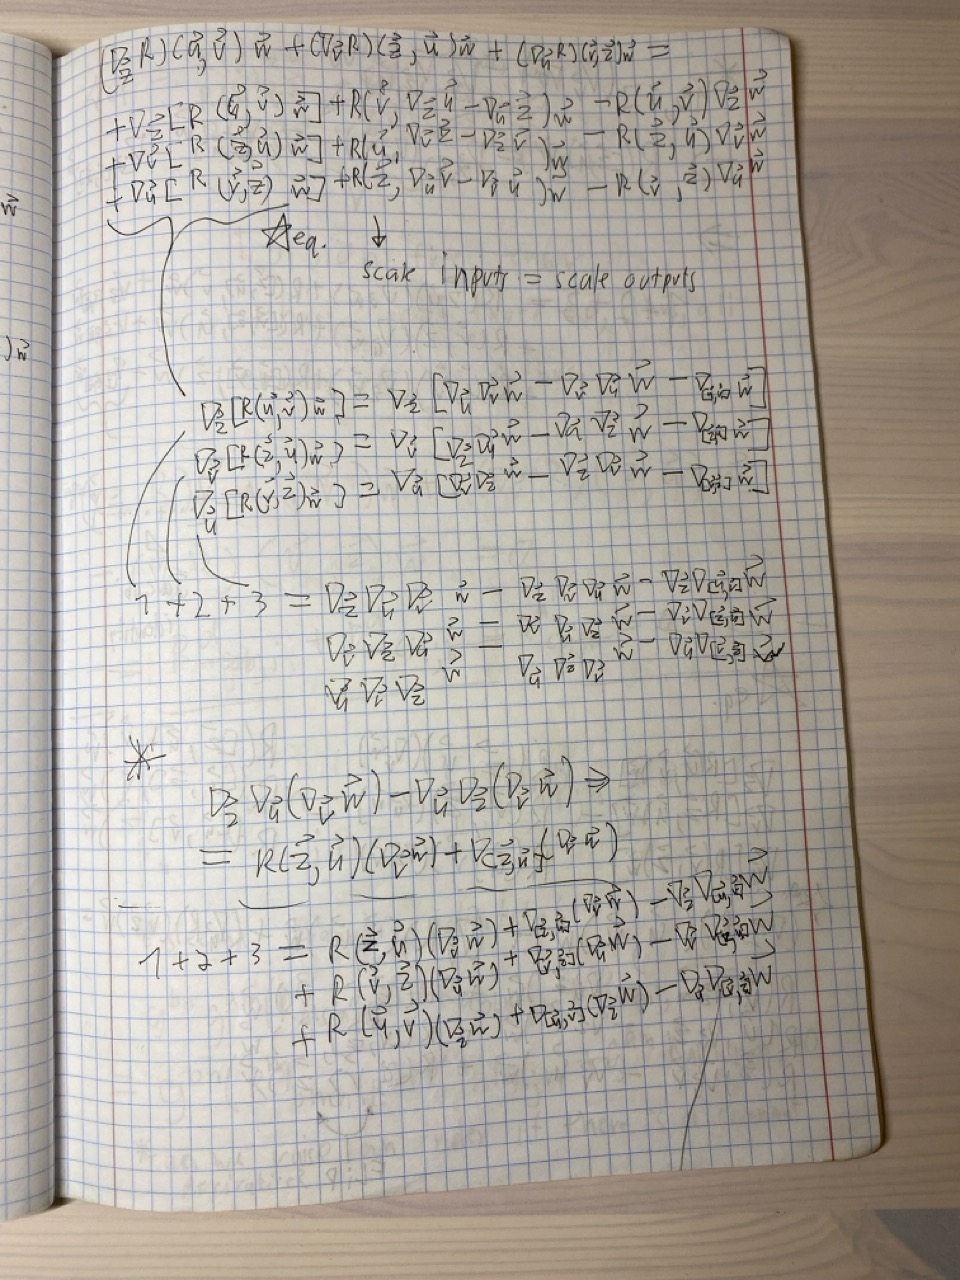 (∇_z⃗ R)(u⃗, v⃗) w⃗ + (∇_v⃗ R)(z⃗, u⃗) w⃗ + (∇_u⃗ R)(v⃗, z⃗) w⃗ =
+ ∇_z⃗ [R(u⃗, v⃗) w⃗] + R(v⃗, ∇_z⃗ u⃗ − ∇_u⃗ z⃗) w⃗ − R(u⃗, v⃗) ∇_z⃗ w⃗
+ ∇_v⃗ [R(z⃗, u⃗) w⃗] + R(u⃗, ∇_v⃗ z⃗ − ∇_z⃗ v⃗) w⃗ − R(z⃗, u⃗) ∇_v⃗ w⃗
+ ∇_u⃗ [R(v⃗, z⃗) w⃗] + R(z⃗, ∇_u⃗ v⃗ − ∇_v⃗ u⃗) w⃗ − R(v⃗, z⃗) ∇_u⃗ w⃗
☆eq. ↓
scale inputs = scale outputs
∇_z⃗ [R(u⃗, v⃗) w⃗] = ∇_z⃗ [∇_u⃗ ∇_v⃗ w⃗ − ∇_v⃗ ∇_u⃗ w⃗ − ∇_[u⃗,v⃗] w⃗]
∇_v⃗ [R(z⃗, u⃗) w⃗] = ∇_v⃗ [∇_z⃗ ∇_u⃗ w⃗ − ∇_u⃗ ∇_z⃗ w⃗ − ∇_[z⃗,u⃗] w⃗]
∇_u⃗ [R(v⃗, z⃗) w⃗] = ∇_u⃗ [∇_v⃗ ∇_z⃗ w⃗ − ∇_z⃗ ∇_v⃗ w⃗ − ∇_[v⃗,z⃗] w⃗]
1 + 2 + 3 = ∇_z⃗ ∇_u⃗ ∇_v⃗ w⃗ − ∇_z⃗ ∇_v⃗ ∇_u⃗ w⃗ − ∇_z⃗ ∇_[u⃗,v⃗] w⃗
∇_v⃗ ∇_z⃗ ∇_u⃗ w⃗ − ∇_v⃗ ∇_u⃗ ∇_z⃗ w⃗ − ∇_v⃗ ∇_[z⃗,u⃗] w⃗
∇_u⃗ ∇_v⃗ ∇_z⃗ w⃗ − ∇_u⃗ ∇_z⃗ ∇_v⃗ w⃗ − ∇_u⃗ ∇_[v⃗,z⃗] w⃗
*
∇_z⃗ ∇_u⃗ (∇_v⃗ w⃗) − ∇_u⃗ ∇_z⃗ (∇_v⃗ w⃗) ⇒
= R(z⃗, u⃗)(∇_v⃗ w⃗) + ∇_[z⃗,u⃗] (∇_v⃗ w⃗)
1 + 2 + 3 = R(z⃗, u⃗)(∇_v⃗ w⃗) + ∇_[z⃗,u⃗] (∇_v⃗ w⃗) − ∇_z⃗ ∇_[u⃗,v⃗] w⃗
+ R(v⃗, z⃗)(∇_u⃗ w⃗) + ∇_[v⃗,z⃗] (∇_u⃗ w⃗) − ∇_v⃗ ∇_[z⃗,u⃗] w⃗
+ R(u⃗, v⃗)(∇_z⃗ w⃗) + ∇_[u⃗,v⃗] (∇_z⃗ w⃗) − ∇_u⃗ ∇_[v⃗,z⃗] w⃗